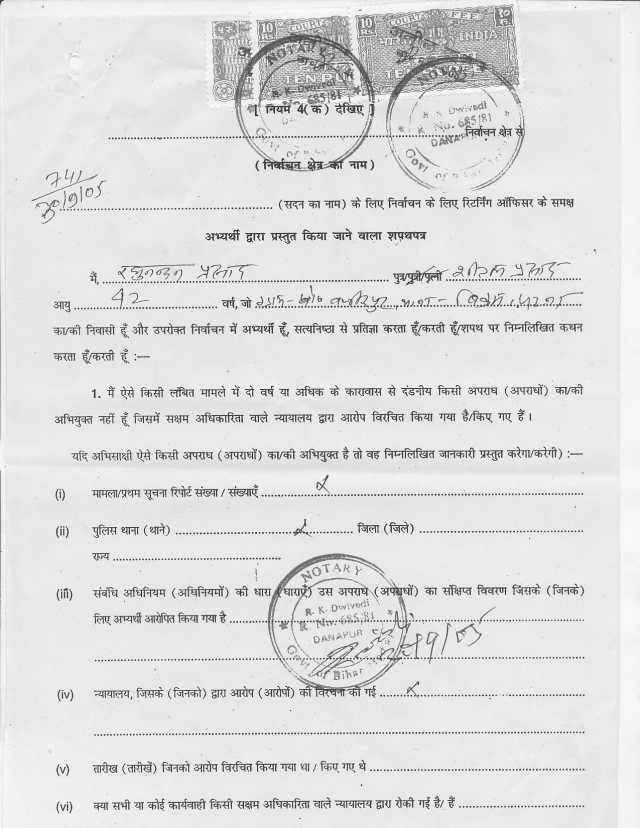 10 Rs. COURT FEE INDIA
TEN RUPEES
NOTARY
R. K. Dwivedi
685/81
Govt of Bihar
NOTARY
R. K. Dwivedi
R No. 685/81
DANAPUR
Govt of Bihar
[ नियम 4(क) देखिए ]
निर्वाचन क्षेत्र से
(निर्वाचन क्षेत्र का नाम)
741
30/9/05
(सदन का नाम) के लिए निर्वाचन के लिए रिटर्निंग ऑफिसर के समक्ष
अभ्यर्थी द्वारा प्रस्तुत किया जाने वाला शपथपत्र
मैं, रघुनन्दन प्रसाद पुत्र/पुत्री/पत्नी शीतल प्रसाद
आयु 42 वर्ष, जो
का/की निवासी हूँ और उपरोक्त निर्वाचन में अभ्यर्थी हूँ, सत्यनिष्ठा से प्रतिज्ञा करता हूँ/करती हूँ/शपथ पर निम्नलिखित कथन
करता हूँ/करती हूँ :—
1. मैं ऐसे किसी लंबित मामले में दो वर्ष या अधिक के कारावास से दंडनीय किसी अपराध (अपराधों) का/की
अभियुक्त नहीं हूँ जिसमें सक्षम अधिकारिता वाले न्यायालय द्वारा आरोप विरचित किया गया है/किए गए हैं ।
यदि अभिसाक्षी ऐसे किसी अपराध (अपराधों) का/की अभियुक्त है तो वह निम्नलिखित जानकारी प्रस्तुत करेगा/करेगी) :—
(i) मामला/प्रथम सूचना रिपोर्ट संख्या / संख्याएँ
(ii) पुलिस थाना (थाने) जिला (जिले)
राज्य
(iii) संबंधि अधिनियम (अधिनियमों) की धारा (धाराएँ) उस अपराध (अपराधों) का संक्षिप्त विवरण जिसके (जिनके)
लिए अभ्यर्थी आरोपित किया गया है
NOTARY
R. K. Dwivedi
R No. 685/81
DANAPUR
Govt of Bihar
(iv) न्यायालय, जिसके (जिनको) द्वारा आरोप (आरोपों) की विरचना की गई
(v) तारीख (तारीखें) जिनको आरोप विरचित किया गया था / किए गए थे
(vi) क्या सभी या कोई कार्यवाही किसी सक्षम अधिकारिता वाले न्यायालय द्वारा रोकी गई है/ हैं